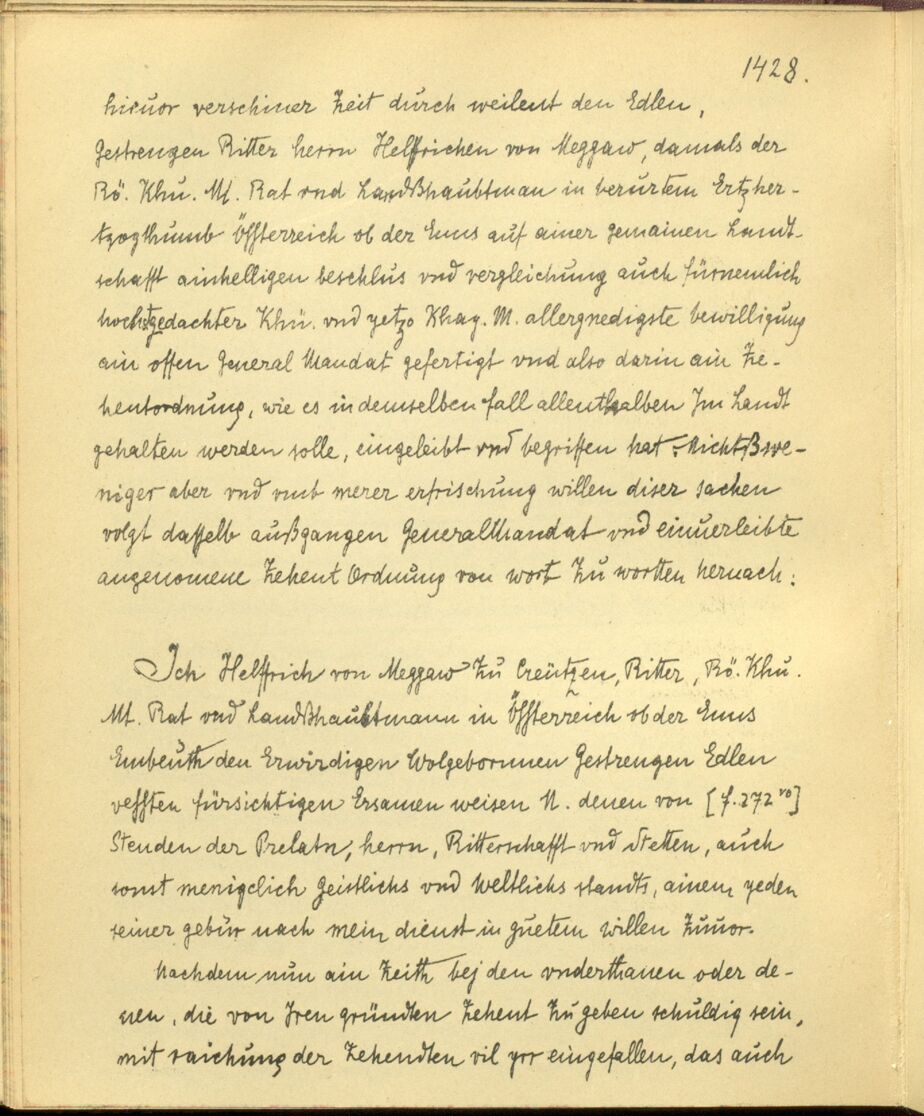 1428.
hieuor verschiner Zeit durch weilent den Edlen,
Gestrengen Ritter herrn Helffrichen von Meggaw, damals der
Rö. Khu. Mt. Rat vnd Landßhaubtman in berurtem Ertzher-
tzogthumb Össterreich ob der Enns auf ainer gemainen Landt-
schafft ainhelligen beschlus vnd vergleichung auch fürnemlich
hochstgedachter Khü. vnd yetzo Khay. M. allergnedigste bewilligung
ain offen General Mandat gefertigt vnd also darin ain Ze-
hentordnung, wie es in demselben fall allenthalben Im Landt
gehalten werden solle, eingeleibt vnd begriffen hat. Nichtßwe-
niger aber vnd vmb merer erfrischung willen diser sachen
volgt dasselb außgangen GeneralMandat vnd einuerleibte
angenomene Zehent Ordnung von wort zu wortten hernach:
Ich Helffrich von Meggaw zu Creützen, Ritter, Rö. Khu.
Mt. Rat vnd Landßhaubtmann in Össterreich ob der Enns
Embeuth den Erwirdigen Wolgebornnen Gestrengen Edlen
vessten fürsichtigen Ersamen weisen N. denen von [f. 272 vo]
Stenden der Prelatn, herrn, Ritterschafft vnd Stetten, auch
sonst menigclich Geistlichs vnd Weltlichs standts, ainem yeden
seiner gebür nach mein dienst in guetem willen zuuor.
Nachdem nun ain Zeith bej den vnderthanen oder de-
nen, die von Iren gründten Zehent zu geben schuldig sein,
mit raichung der Zehendten vil yrr eingefallen, das auch